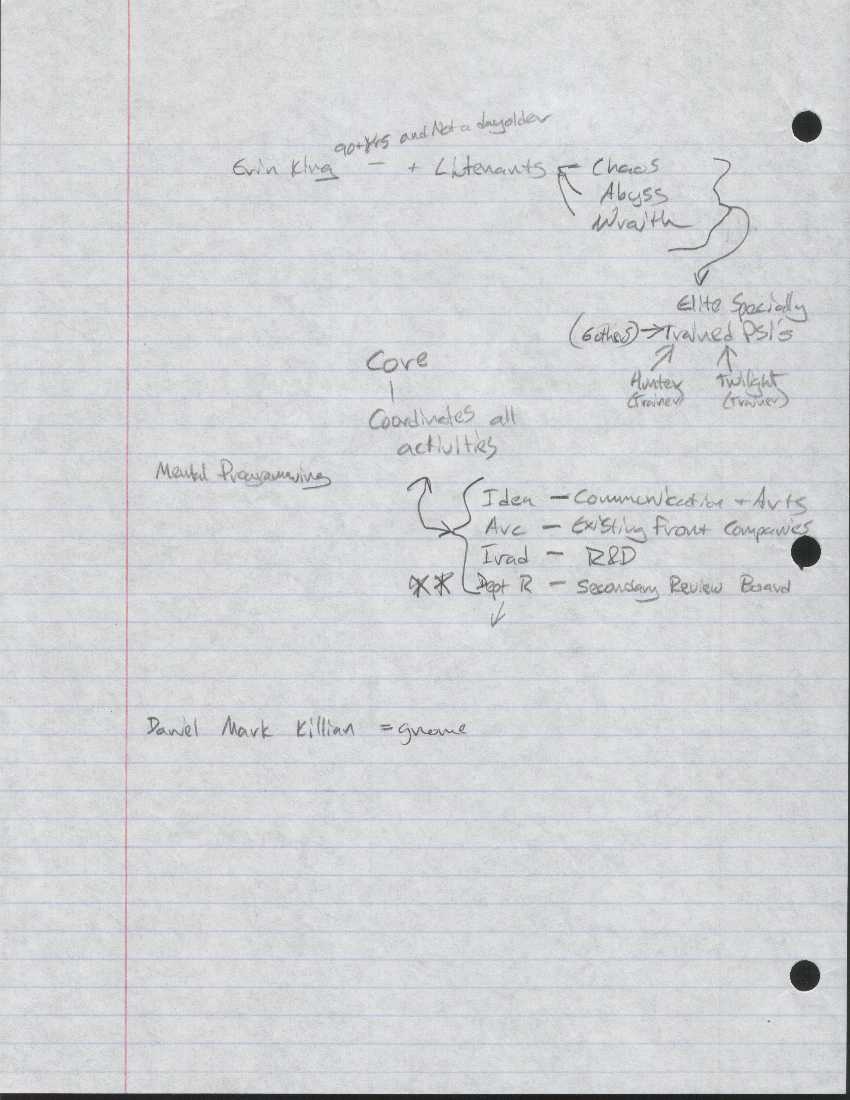 90+ yrs and Not a day older
Erin King — + Liutenants ← Chaos
Abyss
Wraith
Elite Specially
(6 others) → Trained PSI's
Hunter Twilight
(Trainer) (Trainer)
Core
Coordinates all
activities
Mental Programming
Idea — Communication + Arts
Arc — Existing Front Companies
Irad — R&D
** Dept R — Secondary Review Board
Daniel Mark Killian = gnome